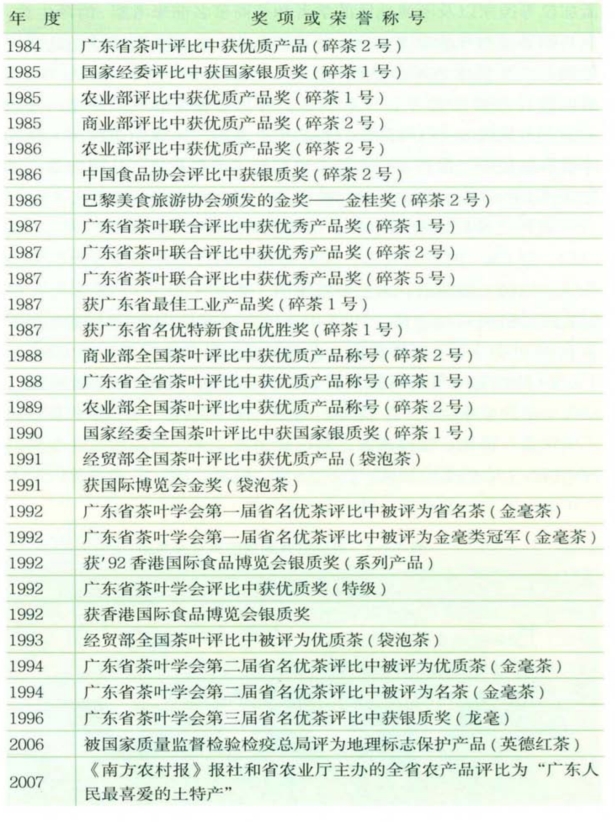 年 度 奖 项 或 荣 誉 称 号
1984 广东省茶叶评比中获优质产品(碎茶2号)
1985 国家经委评比中获国家银质奖(碎茶1号)
1985 农业部评比中获优质产品奖(碎茶1号)
1985 商业部评比中获优质产品奖(碎茶2号)
1986 农业部评比中获优质产品奖(碎茶2号)
1986 中国食品协会评比中获银质奖(碎茶2号)
1986 巴黎美食旅游协会颁发的金奖——金桂奖(碎茶2号)
1987 广东省茶叶联合评比中获优秀产品奖(碎茶1号)
1987 广东省茶叶联合评比中获优秀产品奖(碎茶2号)
1987 广东省茶叶联合评比中获优秀产品奖(碎茶5号)
1987 获广东省最佳工业产品奖(碎茶1号)
1987 获广东省名优特新食品优胜奖(碎茶1号)
1988 商业部全国茶叶评比中获优质产品称号(碎茶2号)
1988 广东省全省茶叶评比中获优质产品称号(碎茶1号)
1989 农业部全国茶叶评比中获优质产品称号(碎茶2号)
1990 国家经委全国茶叶评比中获国家银质奖(碎茶1号)
1991 经贸部全国茶叶评比中获优质产品(袋泡茶)
1991 获国际博览会金奖(袋泡茶)
1992 广东省茶叶学会第一届省名优茶评比中被评为省名茶(金毫茶)
1992 广东省茶叶学会第一届省名优茶评比中被评为金毫类冠军(金毫茶)
1992 获'92香港国际食品博览会银质奖(系列产品)
1992 广东省茶叶学会评比中获优质奖(特级)
1992 获香港国际食品博览会银质奖
1993 经贸部全国茶叶评比中被评为优质茶(袋泡茶)
1994 广东省茶叶学会第二届省名优茶评比中被评为优质茶(金毫茶)
1994 广东省茶叶学会第二届省名优茶评比中被评为名茶(金毫茶)
1996 广东省茶叶学会第三届省名优茶评比中获银质奖(龙毫)
2006 被国家质量监督检验检疫总局评为地理标志保护产品(英德红茶)
2007 《南方农村报》报社和省农业厅主办的全省农产品评比为“广东人
民最喜爱的土特产”